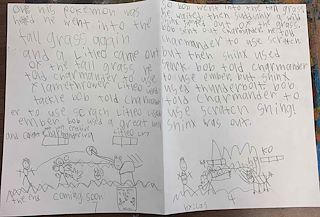 his Pokemon was
he went into the
tall grass again
and a Litleo came out
of the tall grass he
told charmander to use
Flamethrower Litleo used
tackle bob told charmand
er to use scrach Litleo used
ember bob used a great ball
and
the end
coming soon
so bob went to the tall grass
he waited then suddenly a wild
of the grass
bob sent out charmander he told
charmander to use scratch
but then shinx used
bob told charmander
to use ember but shinx
used thunderbolt bob
told charmander to
use scratch
shinx was out.
KO
4